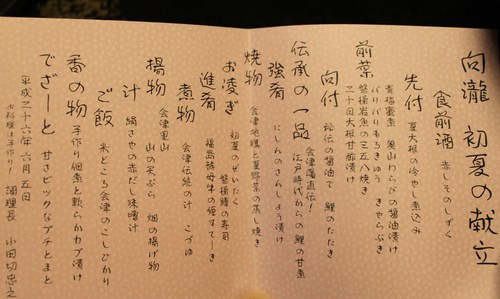 向瀧 初夏の献立
食前酒 赤しそのしずく
先付 夏大根の冷やし煮込み
前菜 青梅蜜煮 裏山わらびの醤油漬け
パリパリもろきゅう きゃらぶき
磐梯岩魚の三五八焼き
二十日大根甘酢漬け
向付 秘伝の醤油で 鯉のたたき
伝承の一品 会津藩直伝!
江戸時代からの 鯉の甘煮
強肴 にしんのさんしょう漬け
焼物 会津地鶏と夏野菜の蒸し焼き
お凌ぎ 初夏のぜいたく
磐梯鱒の寿司
進肴 福島牧場牛の
煮物 会津伝統の汁 こづゆ
揚物 会津里山
山の天ぷら 畑の揚げ物
汁 絹さやの赤だし味噌汁
ご飯 米どころ会津のこしひかり
香の物 手作り佃煮と軟らかカブ漬け
でざーと 甘さビックなプチとまと
平成二十六年六月五日
お料理は手作り! 調理長 小田切忠之